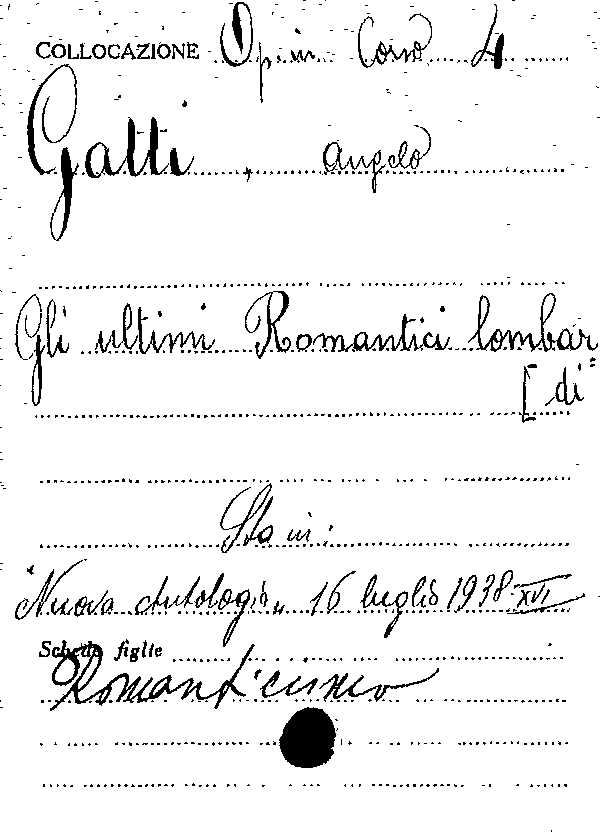 COLLOCAZIONE Op. in Corso 4
Gatti, Angelo
Gli ultimi Romantici lombar=
[di
Sta in:
"Nuova Antologia" 16 luglio 1938-XVI
Schede figlie
Romanticismo